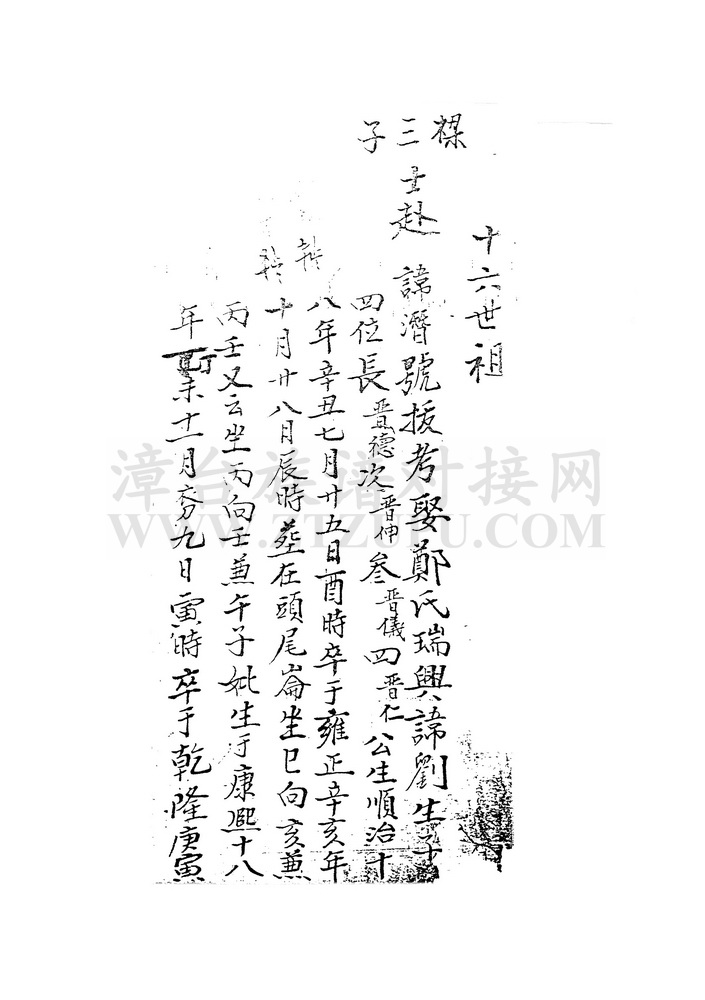 十六世祖
禩三子
士赴 諱潛號援考娶鄭氏瑞興諱劉生子
四位長晋德次晋伸叁晋儀四晋仁公生順治十
八年辛丑七月廿五日酉時卒于雍正辛亥年
十月廿八日辰時塟在頭尾崙坐巳向亥兼
丙壬又云坐丙向壬兼午子妣生于康熈十八
年未十一月初九日寅時卒于乾隆庚寅
漳台族谱对接网
WWW.ZTZUPU.COM